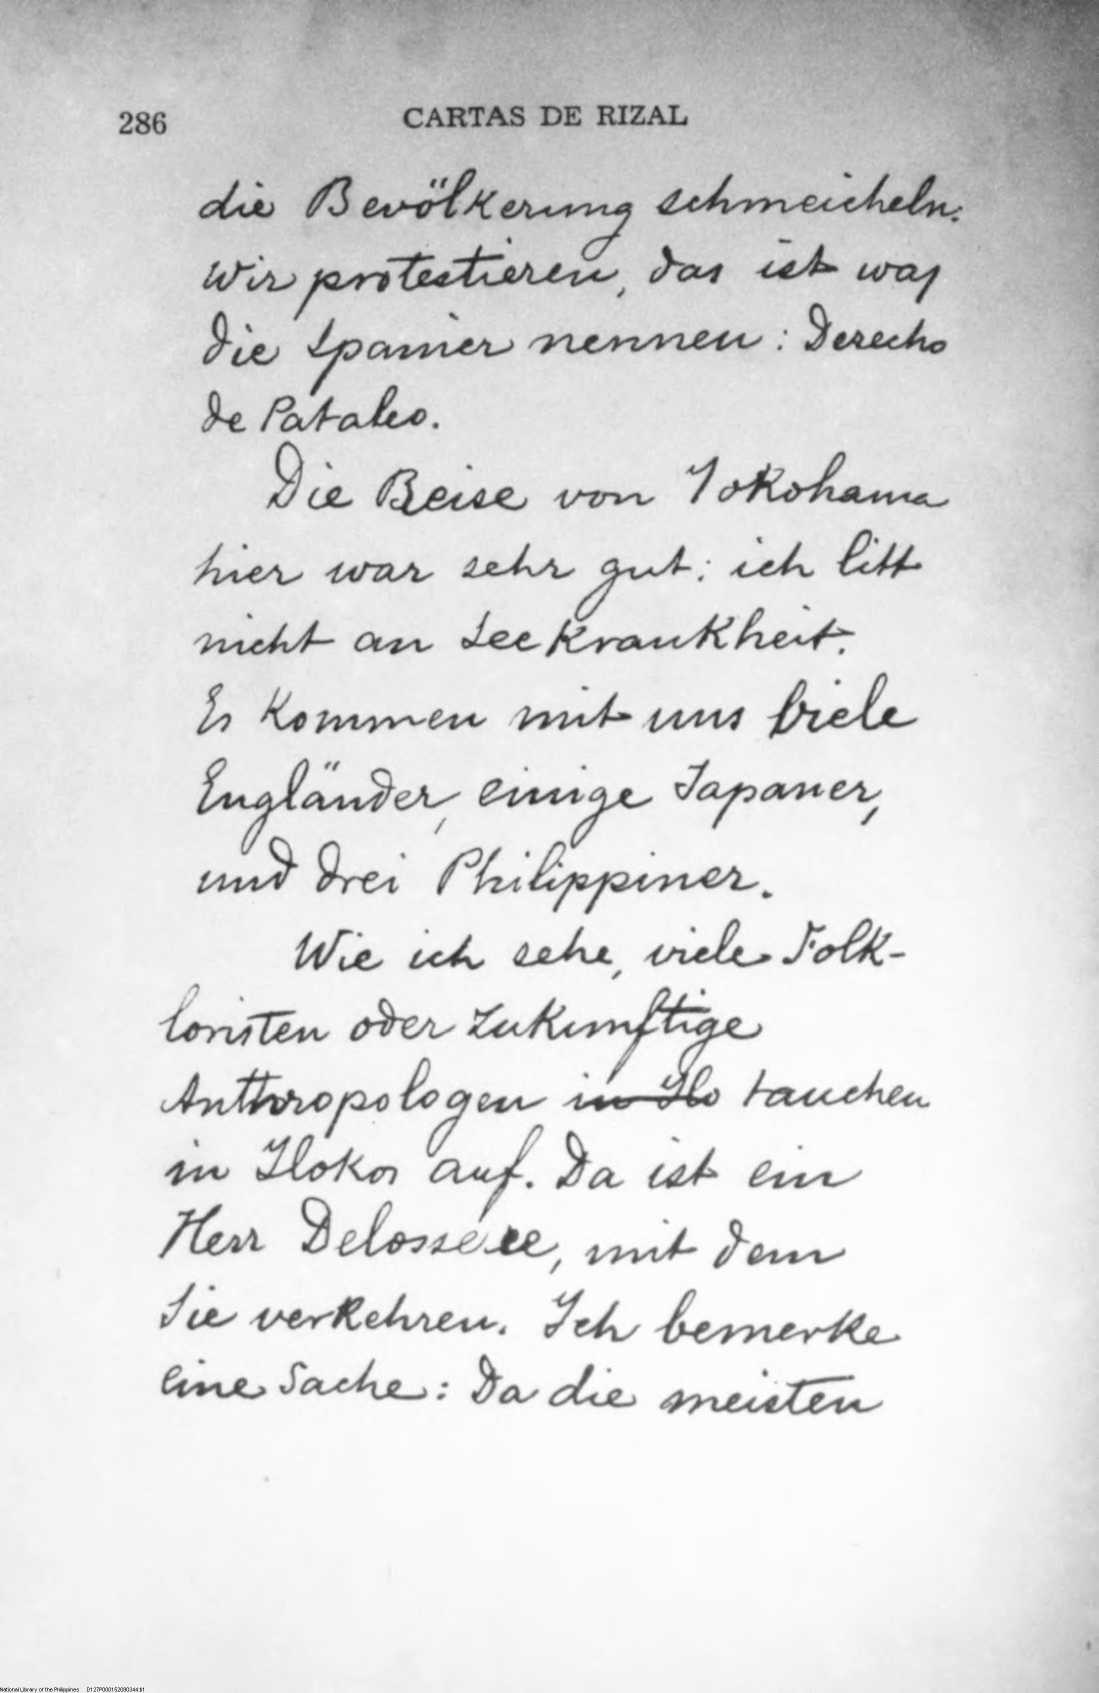 286
CARTAS DE RIZAL
die Bevölkerung schmeicheln.
Wir protestieren, das ist was
die Spanier nennen: Derecho
de Pataleo.
Die Reise von Yokohama
hier war sehr gut: ich litt
nicht an Seekrankheit.
Es kommen mit uns viele
Engländer, einige Japaner,
und drei Philippiner.
Wie ich sehe, viele Folk-
loristen oder zukunftige
Anthropologen in Ilo tauchen
in Ilokos auf. Da ist ein
Herr Delossere, mit dem
Sie verkehren. Ich bemerke
eine Sache: Da die meisten
National Library of the Philippines